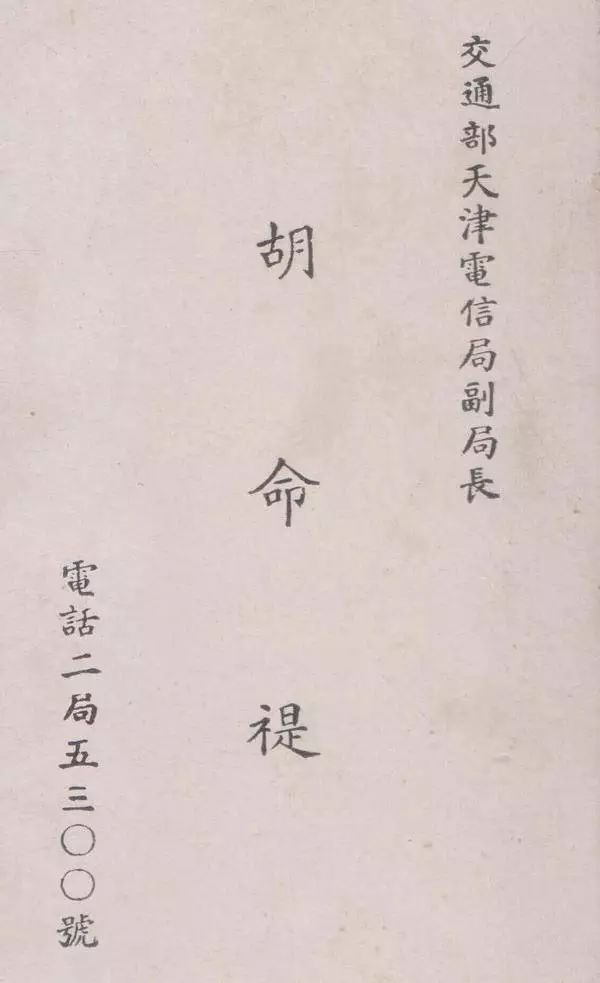 交通部天津電信局副局長
胡命禔
電話二局五三〇〇號